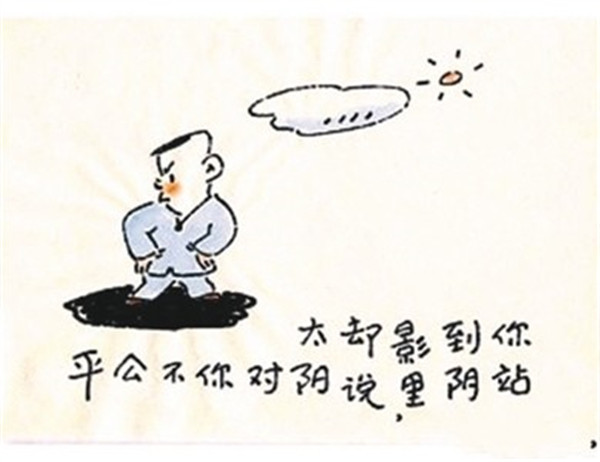 你站
到阴
影里，
却说
太阳
对
你
不
公
平